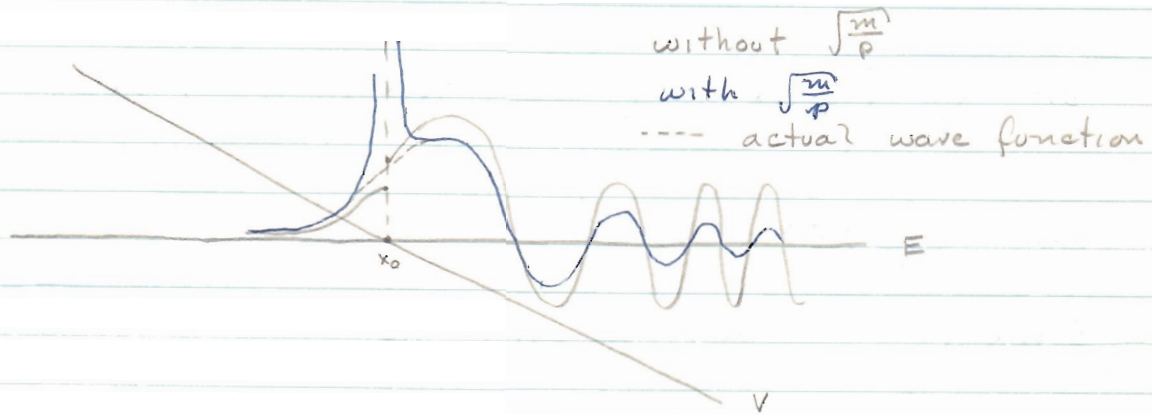 without √(m/p)
with √(m/p)
---- actual wave function
E
x₀
V